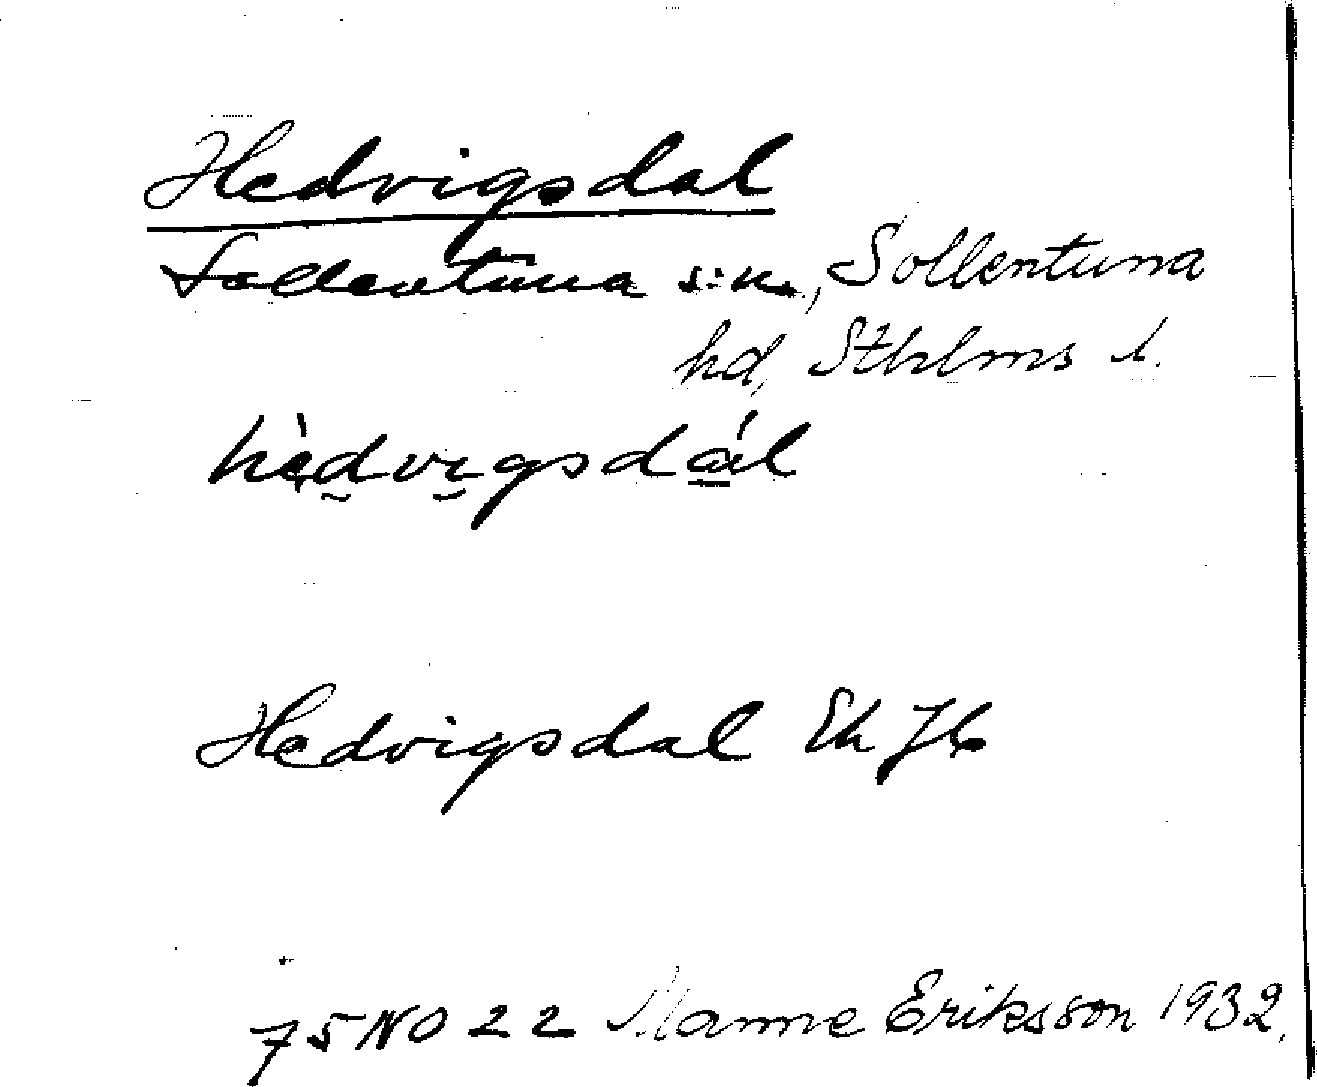 Hedvigsdal
Sollentuna s:n., Sollentuna
hd, Sthlms l.
hèdvigsdál
Hedvigsdal Ek Jb
75 NO 22 Manne Eriksson 1932.